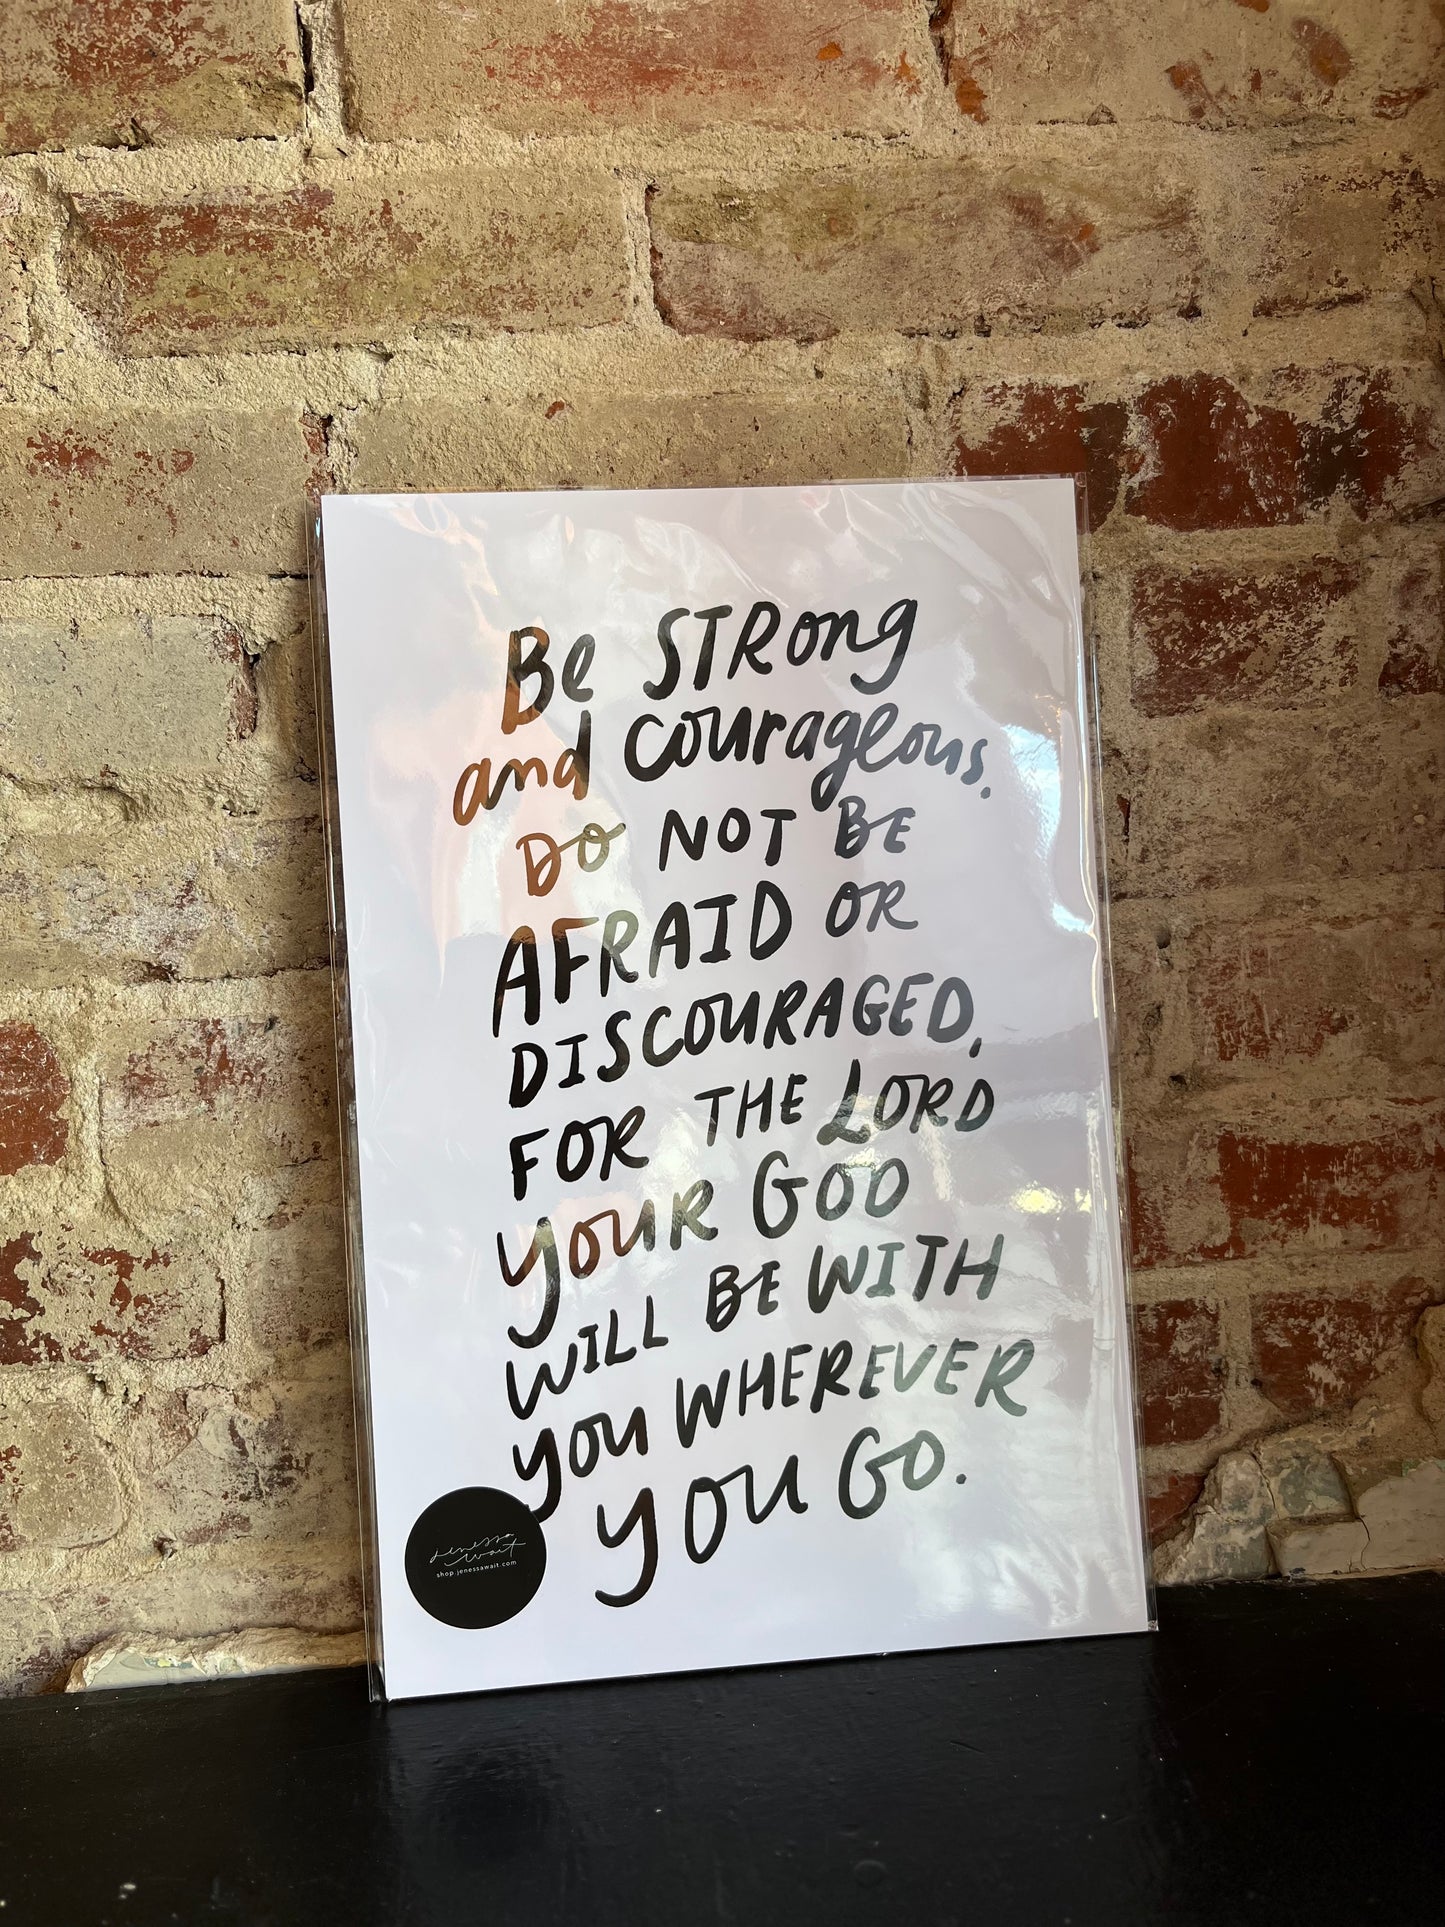 Be STRong
and courageous.
DO NOT BE
AFRAID OR
DISCOURAGED,
FOR THE LORD
YOUR GOD
WILL BE WITH
you WHEREVER
YOU GO.
jenessa
wait
shop.jenessawait.com